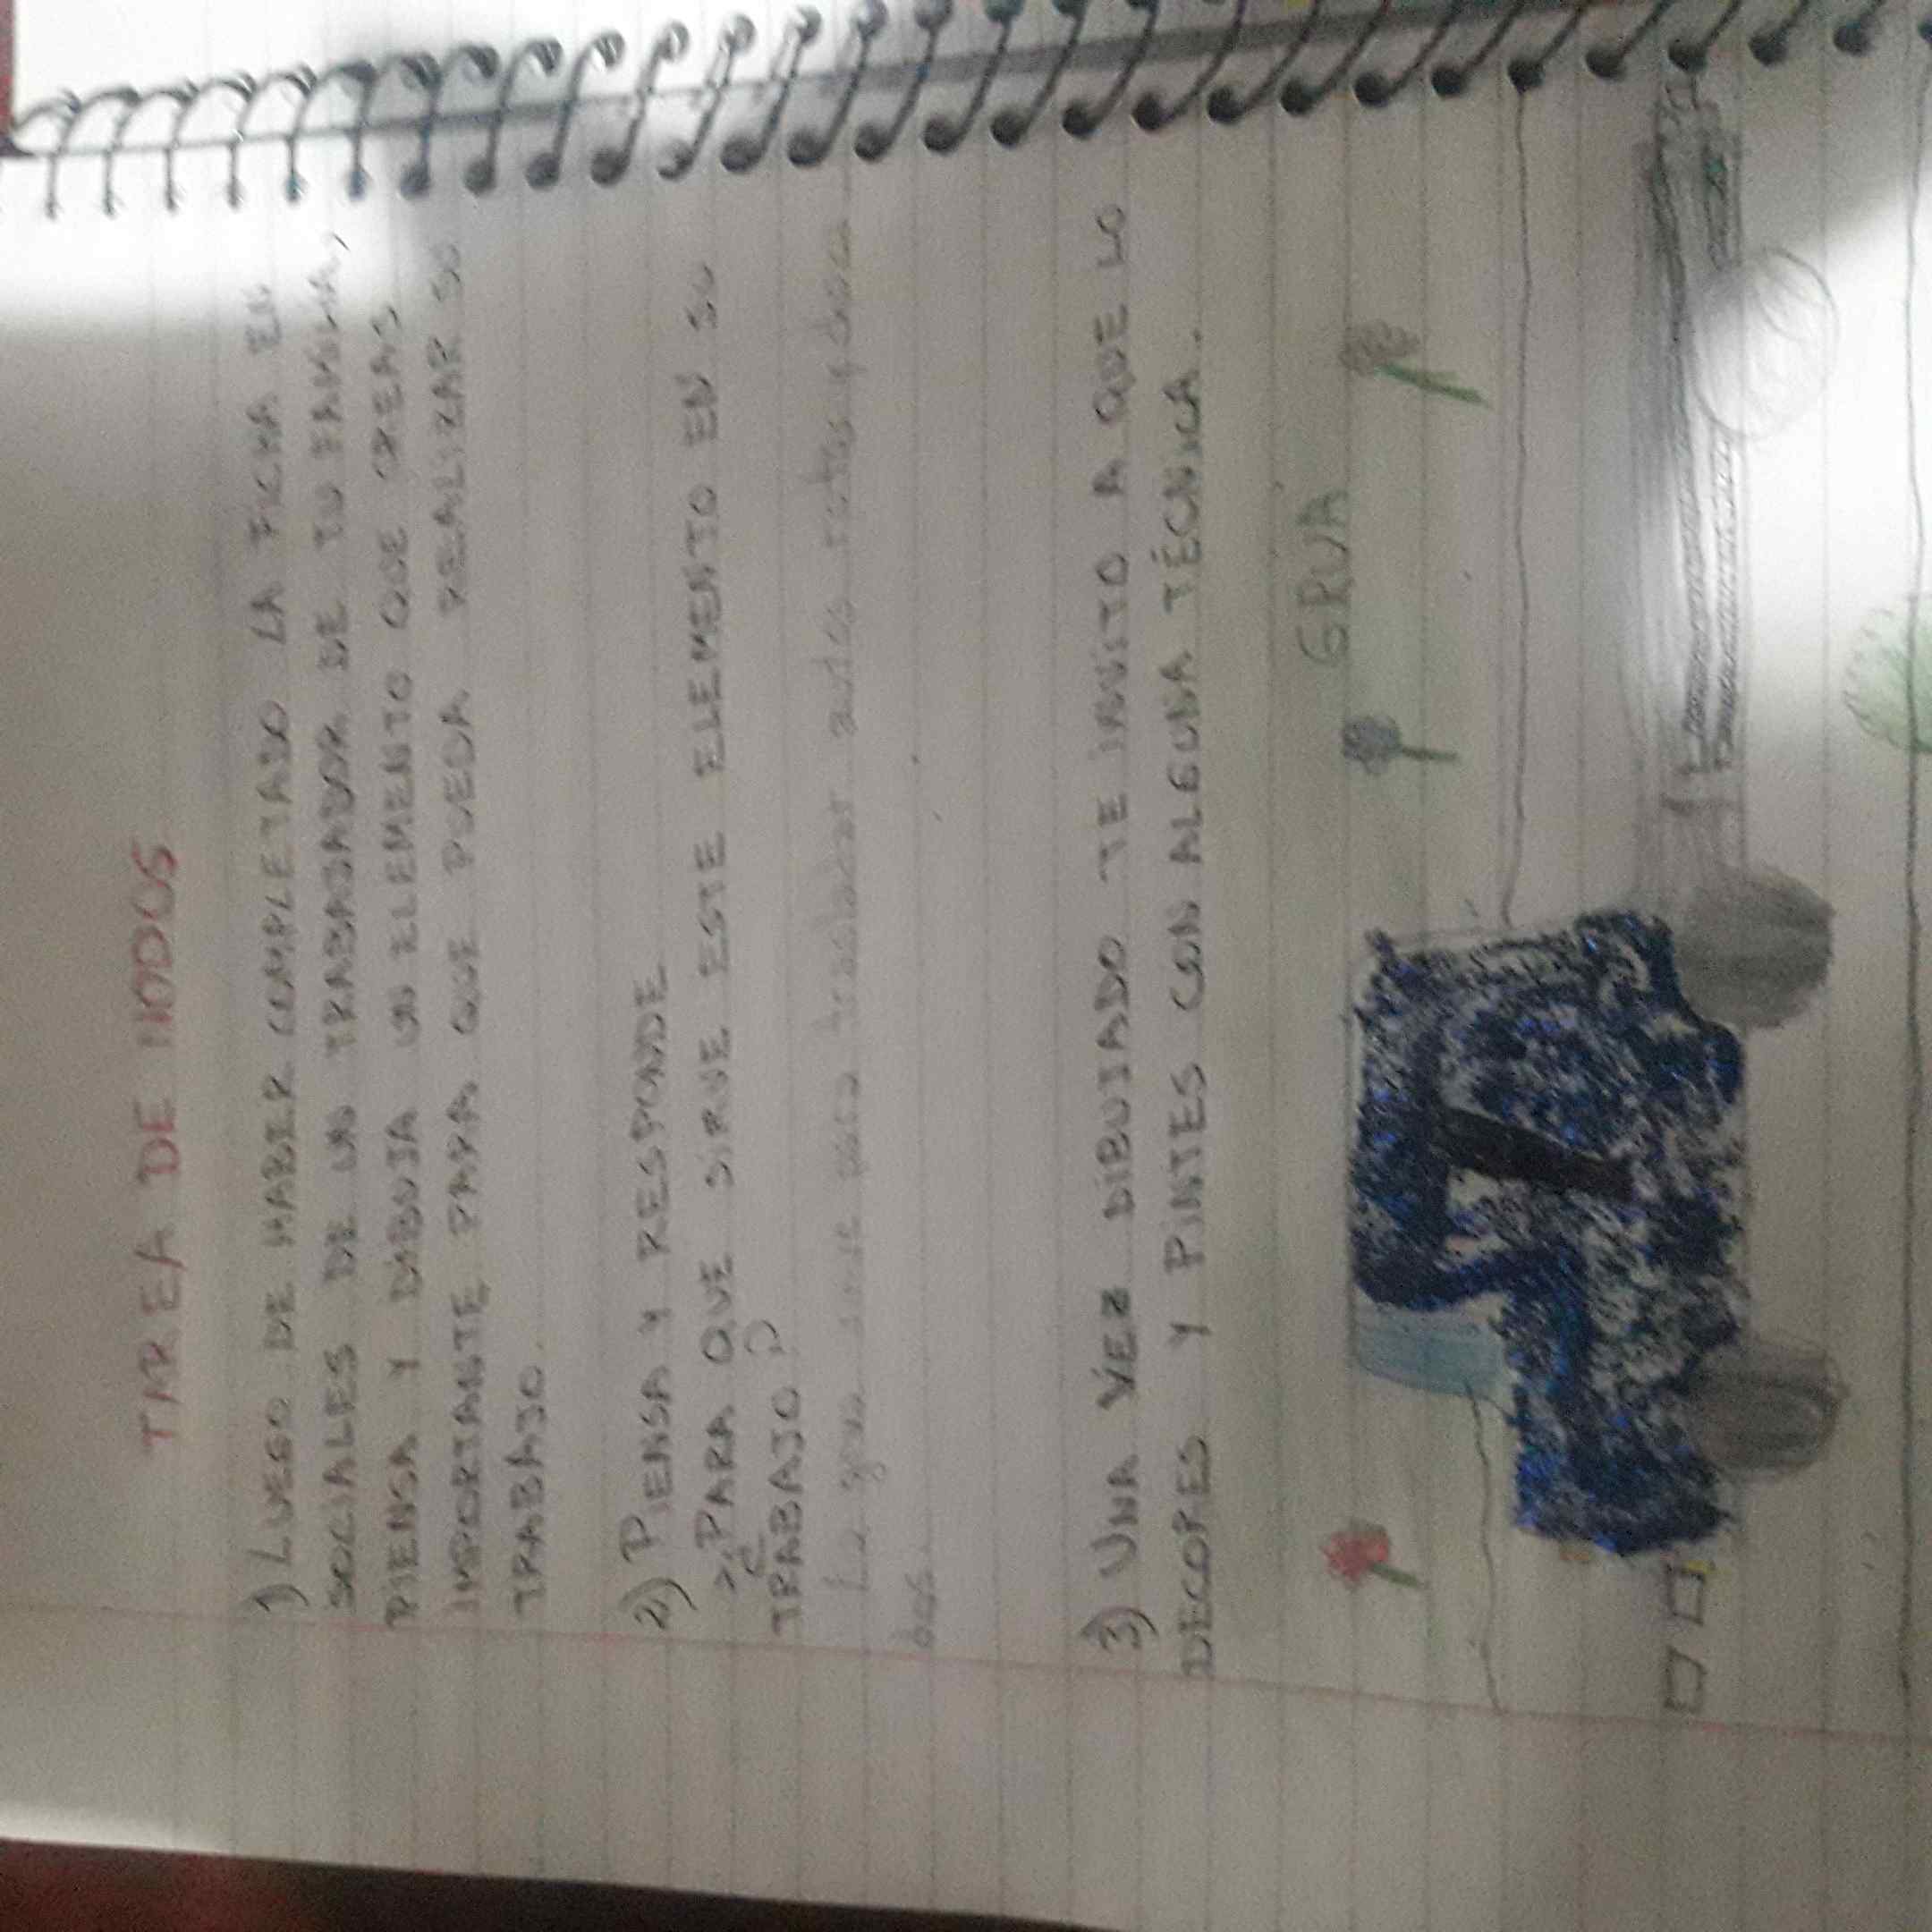 TAREA DE NODOS
1) LUEGO DE HABER COMPLETADO LA FICHA EN
SOCIALES DE UN TRABAJADOR DE TU FAMILIA,
PIENSA Y DIBUJA UN ELEMENTO QUE CREAS
IMPORTANTE PARA QUE PUEDA REALIZAR SU
TRABAJO.
2) PIENSA Y RESPONDE
> ¿PARA QUE SIRVE ESTE ELEMENTO EN SU
TRABAJO?
La grua sirve para trasladar autos rotos y choca
dos.
3) UNA VEZ DIBUJADO TE INVITO A QUE LO
DECORES Y PINTES CON ALGUNA TÉCNICA.
GRUA